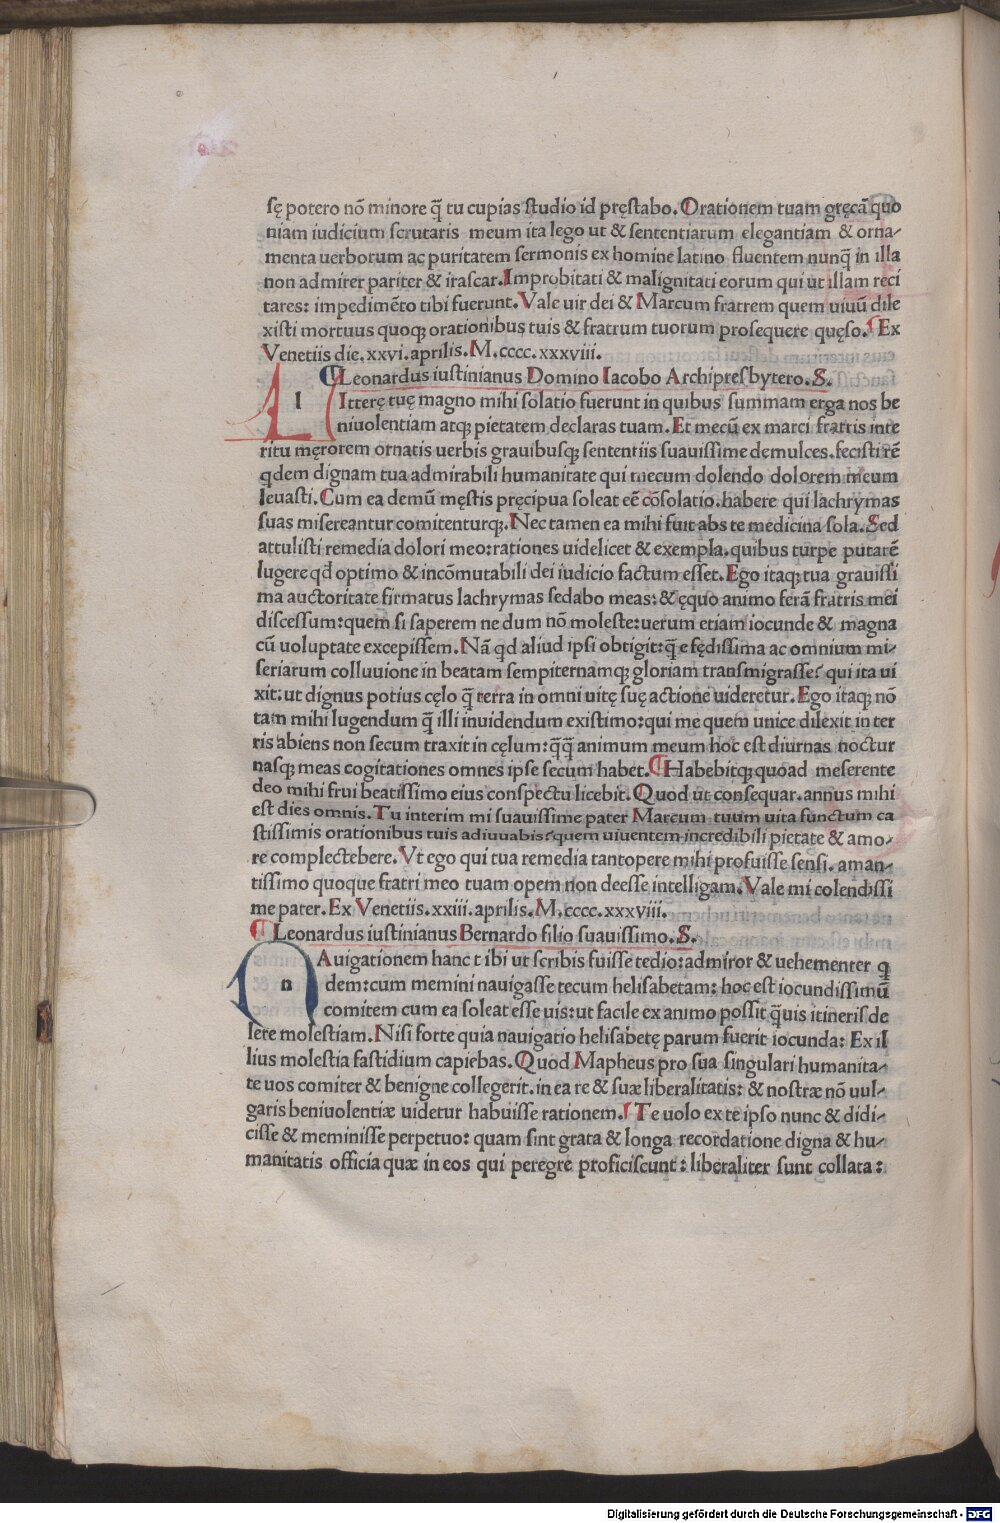 sę potero nō minore q̄ tu cupias studio id pręstabo. Orationem tuam gręcā quo
niam iudicium scrutaris meum ita lego ut & sententiarum elegantiam & orna-
menta uerborum ac puritatem sermonis ex homine latino fluentem nunq̄ in illa
non admirer pariter & irascar. Improbitati & malignitati eorum qui ut illam reci
tares: impedimēto tibi fuerunt. Vale uir dei & Marcum fratrem quem uiuū dile
xisti mortuus quoqꝫ orationibus tuis & fratrum tuorum prosequere quęso. Ex
Venetiis die. xxvi. aprilis. M. cccc. xxxviii.
Leonardus iustinianus Domino Iacobo Archipresbytero. S.
l Itterę tuę magno mihi solatio fuerunt in quibus summam erga nos be
niuolentiam atqꝫ pietatem declaras tuam. Et mecū ex marci fratris inte
ritu męrorem ornatis uerbis grauibusqꝫ sententiis suauissime demulces. fecisti rē
qdem dignam tua admirabili humanitate qui mecum dolendo dolorem meum
leuasti. Cum ea demū męstis pręcipua soleat eē cōsolatio. habere qui lachrymas
suas misereantur comitenturqꝫ. Nec tamen ea mihi fuit abs te medicina sola. Sed
attulisti remedia dolori meo: rationes uidelicet & exempla. quibus turpe putarē
lugere qđ optimo & incōmutabili dei iudicio factum esset. Ego itaqꝫ tua grauissi
ma auctoritate firmatus lachrymas sedabo meas: & ęquo animo ferā fratris mei
discessum: quem si saperem ne dum nō moleste: uerum etiam iocunde & magna
cū uoluptate excepissem. Nā qđ aliud ipsi obtigit: q̄ e fędissima ac omnium mi-
seriarum colluuione in beatam sempiternamqꝫ gloriam transmigrasse? qui ita ui
xit: ut dignus potius cęlo q̄ terra in omni uitę suę actione uideretur. Ego itaqꝫ nō
tam mihi lugendum q̄ illi inuidendum existimo: qui me quem unice dilexit in ter
ris abiens non secum traxit in cęlum: q̄q̄ animum meum hoc est diurnas noctur
nasqꝫ meas cogitationes omnes ipse secum habet. Habebitqꝫ quoad meserente
deo mihi frui beatissimo eius conspectu licebit. Quod ut consequar. annus mihi
est dies omnis. Tu interim mi suauissime pater Marcum tuum uita functum ca
stissimis orationibus tuis adiuuabis: quem uiuentem incredibili pietate & amo-
re complectebere. Vt ego qui tua remedia tantopere mihi profuisse sensi. aman-
tissimo quoque fratri meo tuam opem non deesse intelligam. Vale mi colendissi
me pater. Ex Venetiis. xxiii. aprilis. M. cccc. xxxviii.
Leonardus iustinianus Bernardo filio suauissimo. S.
n Auigationem hanc t ibi ut scribis fuisse tedio: admiror & uehementer q
dem: cum memini nauigasse tecum helisabetam: hoc est iocundissimū
comitem cum ea soleat esse uis: ut facile ex animo possit q̄uis itineris de
lere molestiam. Nisi forte quia nauigatio helisabetę parum fuerit iocunda: Ex il
lius molestia fastidium capiebas. Quod Mapheus pro sua singulari humanita-
te uos comiter & benigne collegerit. in ea re & suæ liberalitatis: & nostræ nō uul-
garis beniuolentiæ uidetur habuisse rationem. Te uolo ex te ipso nunc & didi-
cisse & meminisse perpetuo: quam sint grata & longa recordatione digna & hu-
manitatis officia quæ in eos qui peregre proficiscunt: liberaliter sunt collata:
Digitalisierung gefördert durch die Deutsche Forschungsgemeinschaft - DFG